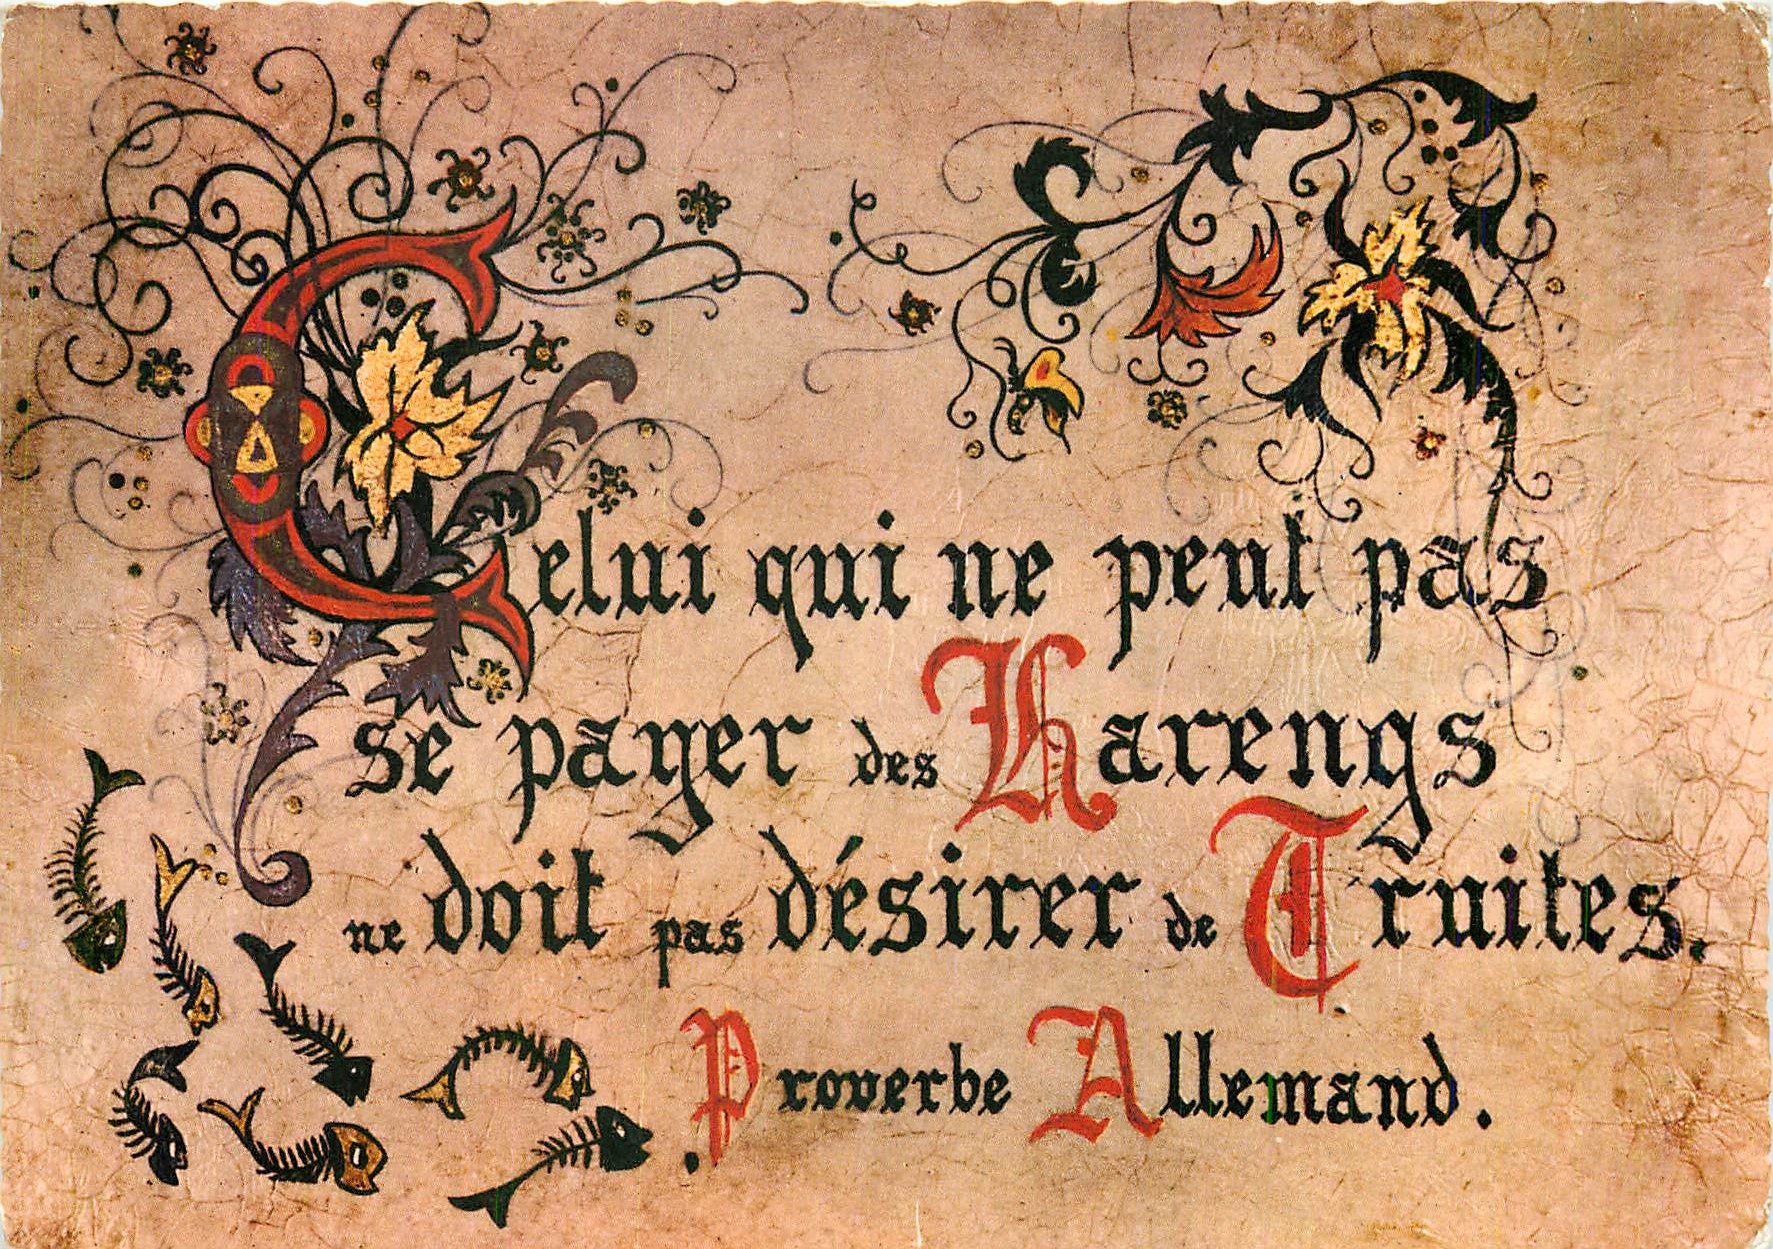 Celui qui ne peut pas
se payer des Harengs
ne doit pas désirer de Truites.
Proverbe Allemand.